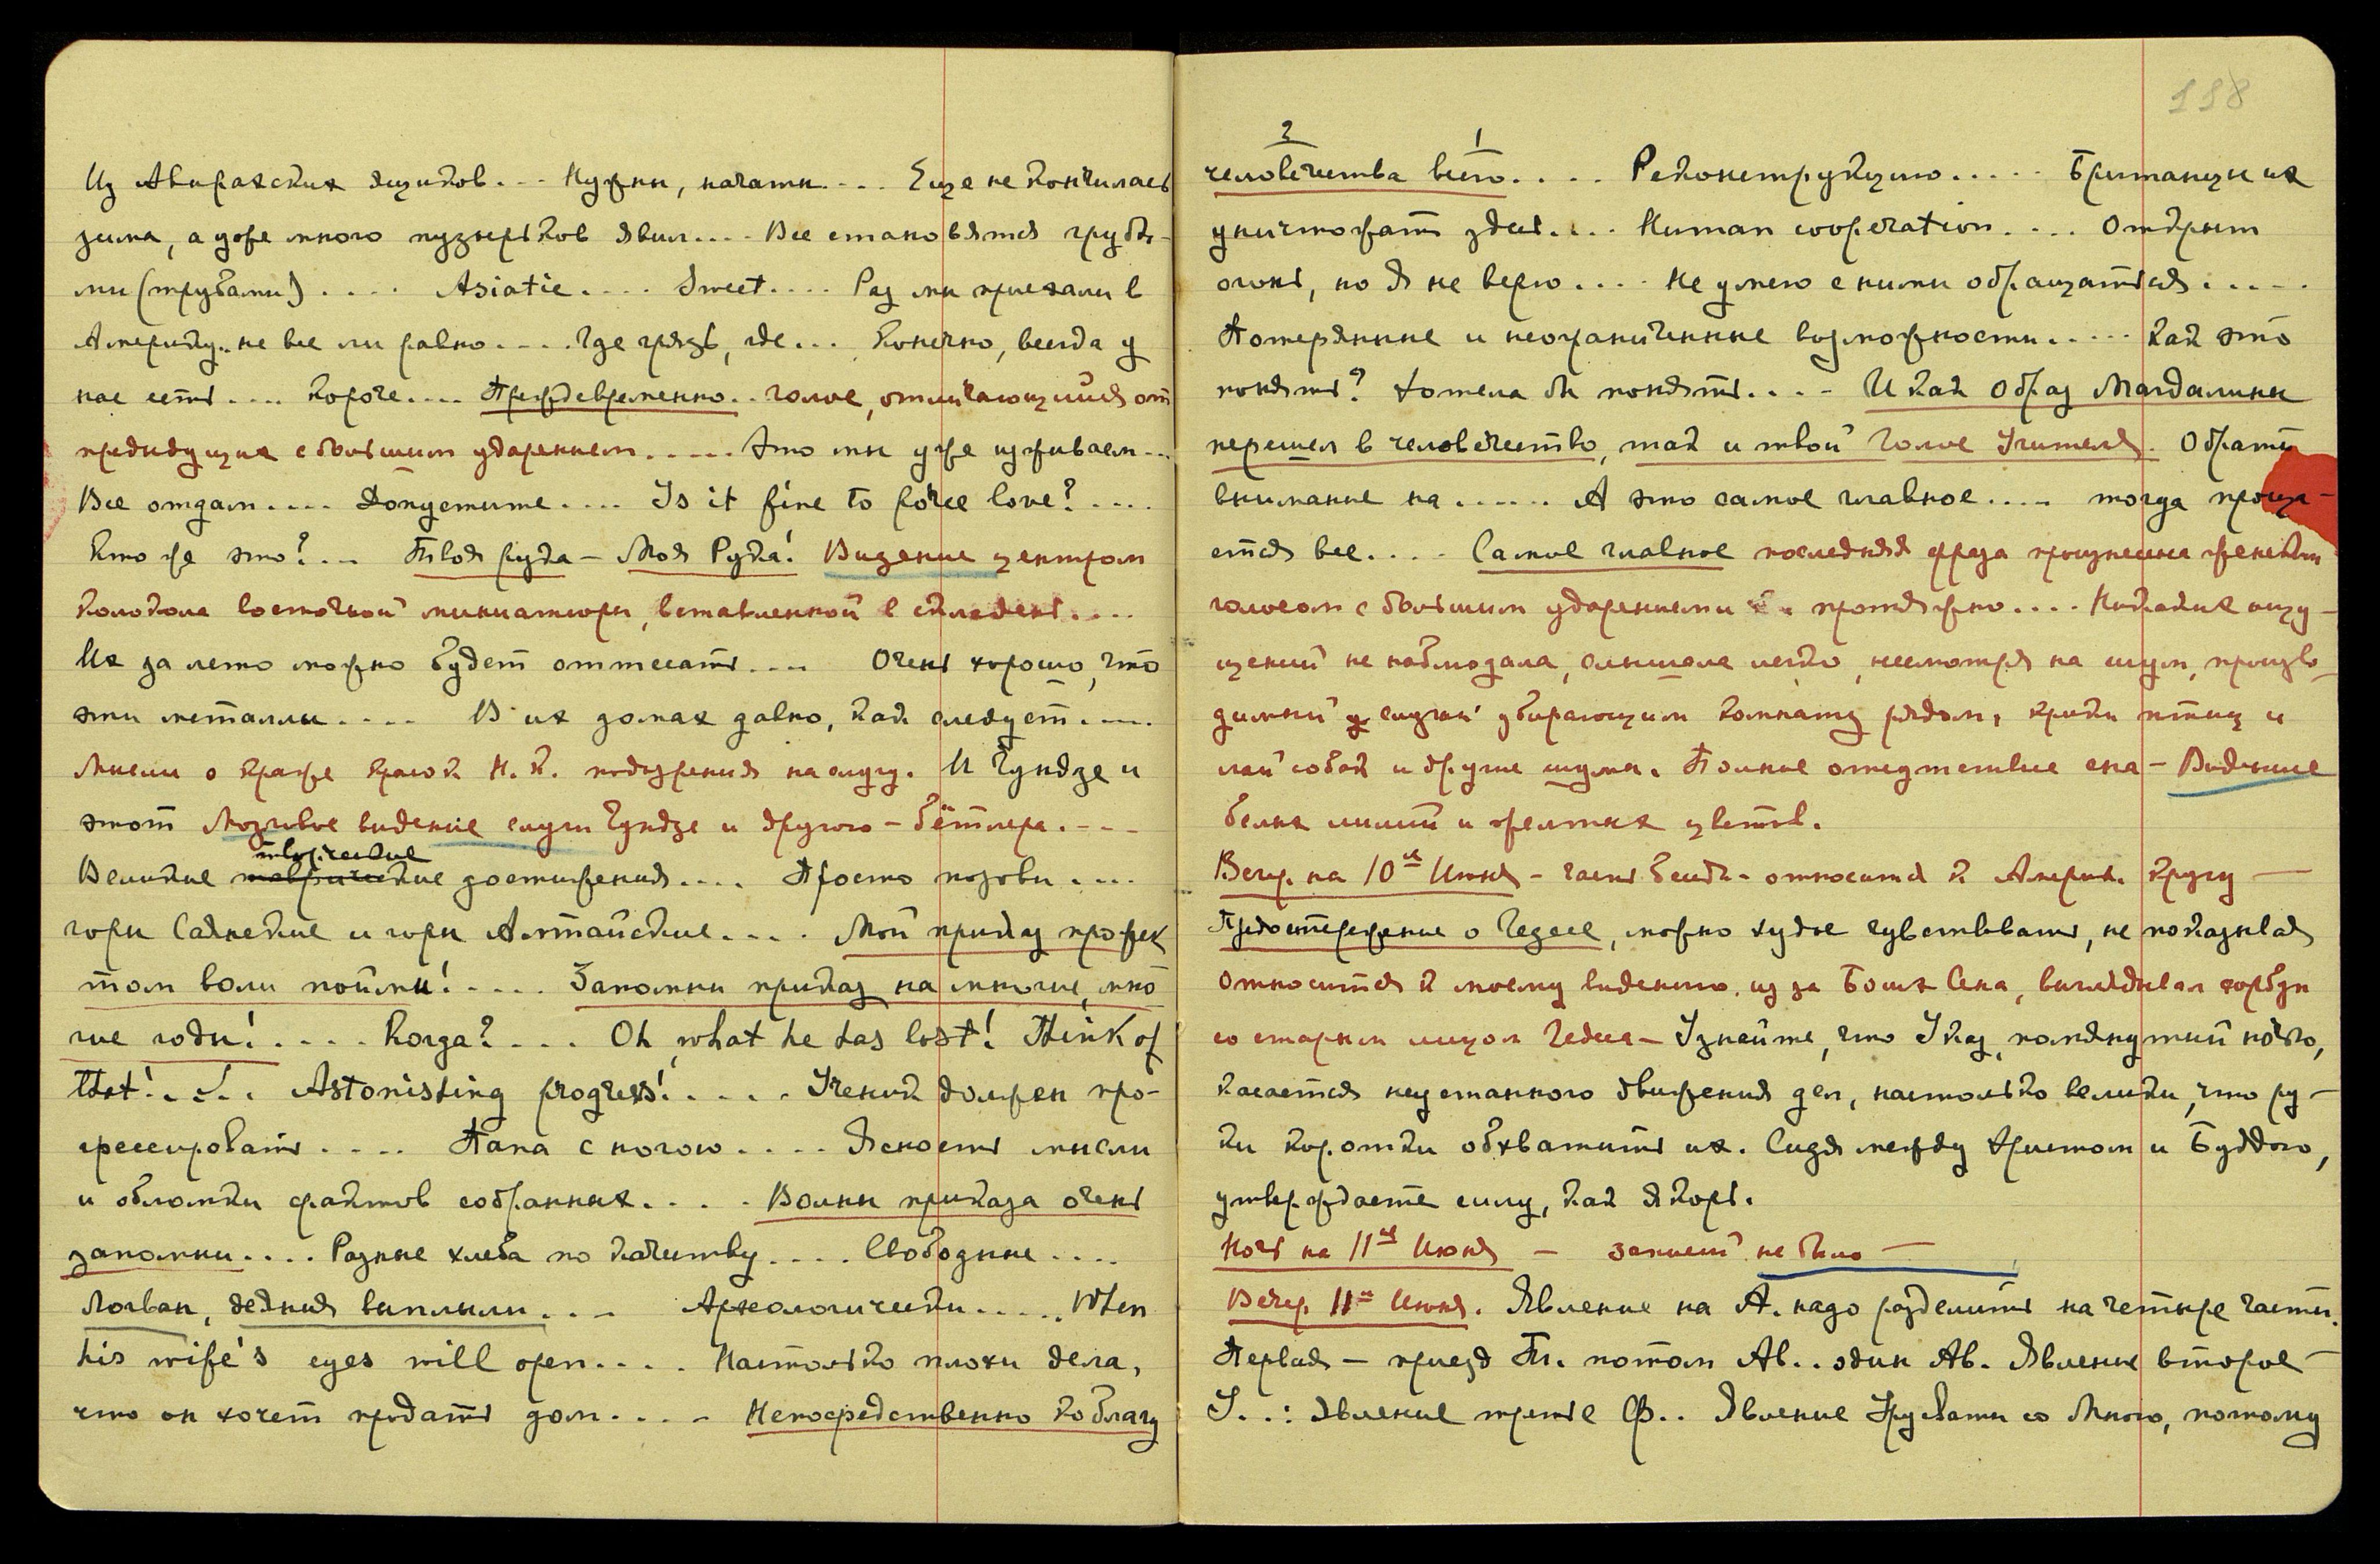 Из Авиражских ящиков... Нужны, начаты.... Еще не кончилась
зима, а уже много пузырьков явил.... Все становятся грубы-
ми (трубами).... Asiatic.... Sweet.... Раз мы приехали в
Америку.. не все ли равно.... где грязь, где... Конечно, всегда у
нас есть.... Короче.... Преждевременно.. голос, отличающийся от
предидущих с большим ударением..... Это мы уже изживаем...
Все отдам.... Допустите.... Is it fine to force love?....
Кто же это?... Твоя рука – Моя Рука! Видение центром
колокола восточной миниатюры, вставленной в складень....
Их за лето можно будет оттесать.... Очень хорошо, что
эти металлы.... В их домах давно, как следует.....
Мысли о краже красок Н. К. подозрения на слугу. И Чундзе и
этот Мозговое видение слуги Чундзе и другого – бётлера....
творческие
Великие достижения.... Просто позови....
горы Саянские и горы Алтайские.... Мой приказ прожек
том воли пойми!.... Запомни приказ на многие, мно
гие годы!..... Когда?.... Oh, what he has lost! Think of
that!.... Astonishing progress!..... Ученик должен про-
грессировать.... Папа с ногою.... Ясность мысли
и обломки фактов собранных..... Волны приказа очень
запомни.... Разные хлеба по качеству.... Свободные....
Логван, деяния выплыли.... Археологически..... When
his wife's eyes will open.... Настолько плохи дела,
что он хочет продать дом.... Непосредственно ко благу
198
2 1
человечества всего.... Реконструкцию..... Британцы их
уничтожат здесь.... Human cooperation.... Открыт
огонь, но я не верю.... Не умею с ними обращаться.....
Потерянные и неограниченные возможности..... Как это
понять? Хотела бы понять.... И как Образ Магдалины
перешел в человечество, так и твой Голос Учителя. Обрати
внимание на...... А это самое главное.... тогда проща-
ется все.... Самое главное последняя фраза произнесена женским
голосом с большим ударениями протяжно.... Никаких ощу-
щений не наблюдала, слышала легко, несмотря на шум, произво-
димый слугой убирающим комнату рядом, крики птиц и
лай собак и другие шумы. Полное отсутствие сна – Видение
белых лилий и желтых цветов.
Веч. на 10ое Июня – часть беседы – относится к Америк. кругу —
Предостережение о Чедсее, можно худое чувствовать, не показывая
относится к моему видению, из за Боша Сена, выглядывал горбун
со старым лицом Чедсея – Узнайте, что Указ, помянутый ночью,
касается неустанного движения дел, настолько велики, что ру-
ки коротки обхватить их. Сидя между Христом и Буддою,
утверждаете силу, как якорь.
Ночь на 11ое Июня – записей не было —
Вечер. 11ое Июня. Явление на А. надо разделить на четыре части.
Первая – приезд Пл. потом Ав.. один Ав. Явление второе –
У..: Явление третье Ф.. Явление Урусвати со Мною, потому